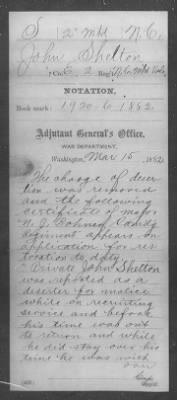 S 2 Mtd N.C.
John Shelton
, Co. E, 2 Reg't N.C. Mtd Vols.
NOTATION,
Book mark: 1920-C-1882
Adjutant General's Office,
WAR DEPARTMENT,
Washington, Mar 15, 1882.
The charge of deser
tion was removed
and the following
certificate of major
W. G. Comdg
Regiment appears on
application for res
toration to duty.
"Private John Shelton
was reported as a
deserter for
while on recruiting
service and before
his time was out
to return and while
he did stay over his
time he was with
over